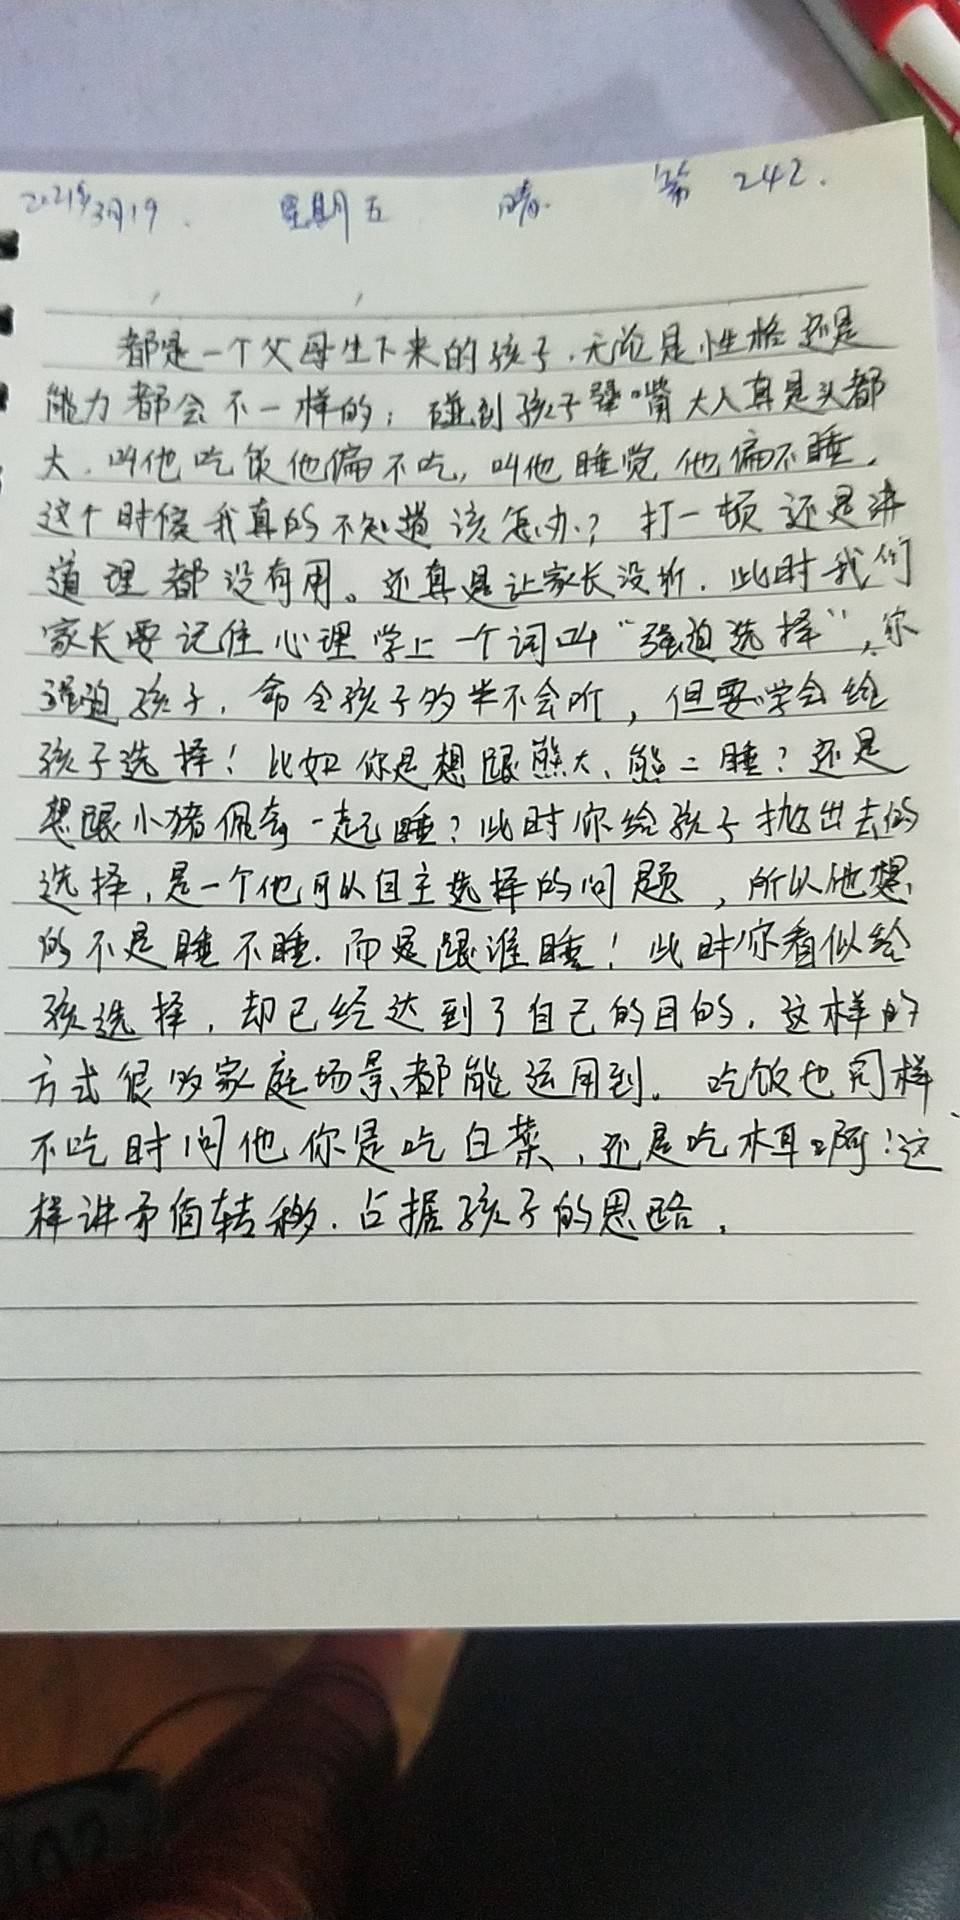 2021年3月19. 星期五 晴. 第 242.
都是一个父母生下来的孩子.无论是性格还是
能力都会不一样的；碰到孩子犟嘴大人真是头都
大.叫他吃饭他偏不吃,叫他睡觉他偏不睡.
这个时候我真的不知道该怎办？打一顿还是讲
道理都没有用。还真是让家长没折.此时我们
家长要记住心理学上一个词叫“强迫选择”,你
强迫孩子,命令孩子多半不会听,但要学会给
孩子选择！比如你是想跟熊大、熊二睡？还是
想跟小猪佩奇一起睡？此时你给孩子抛出去的
选择,是一个他可以自主选择的问题,所以他想
的不是睡不睡.而是跟谁睡！此时你看似给
孩选择,却已经达到了自己的目的.这样的
方式很多家庭场景都能运用到。吃饭也同样、
不吃时问他你是吃白菜,还是吃木耳啊!这
样讲矛盾转移.占据孩子的思路.